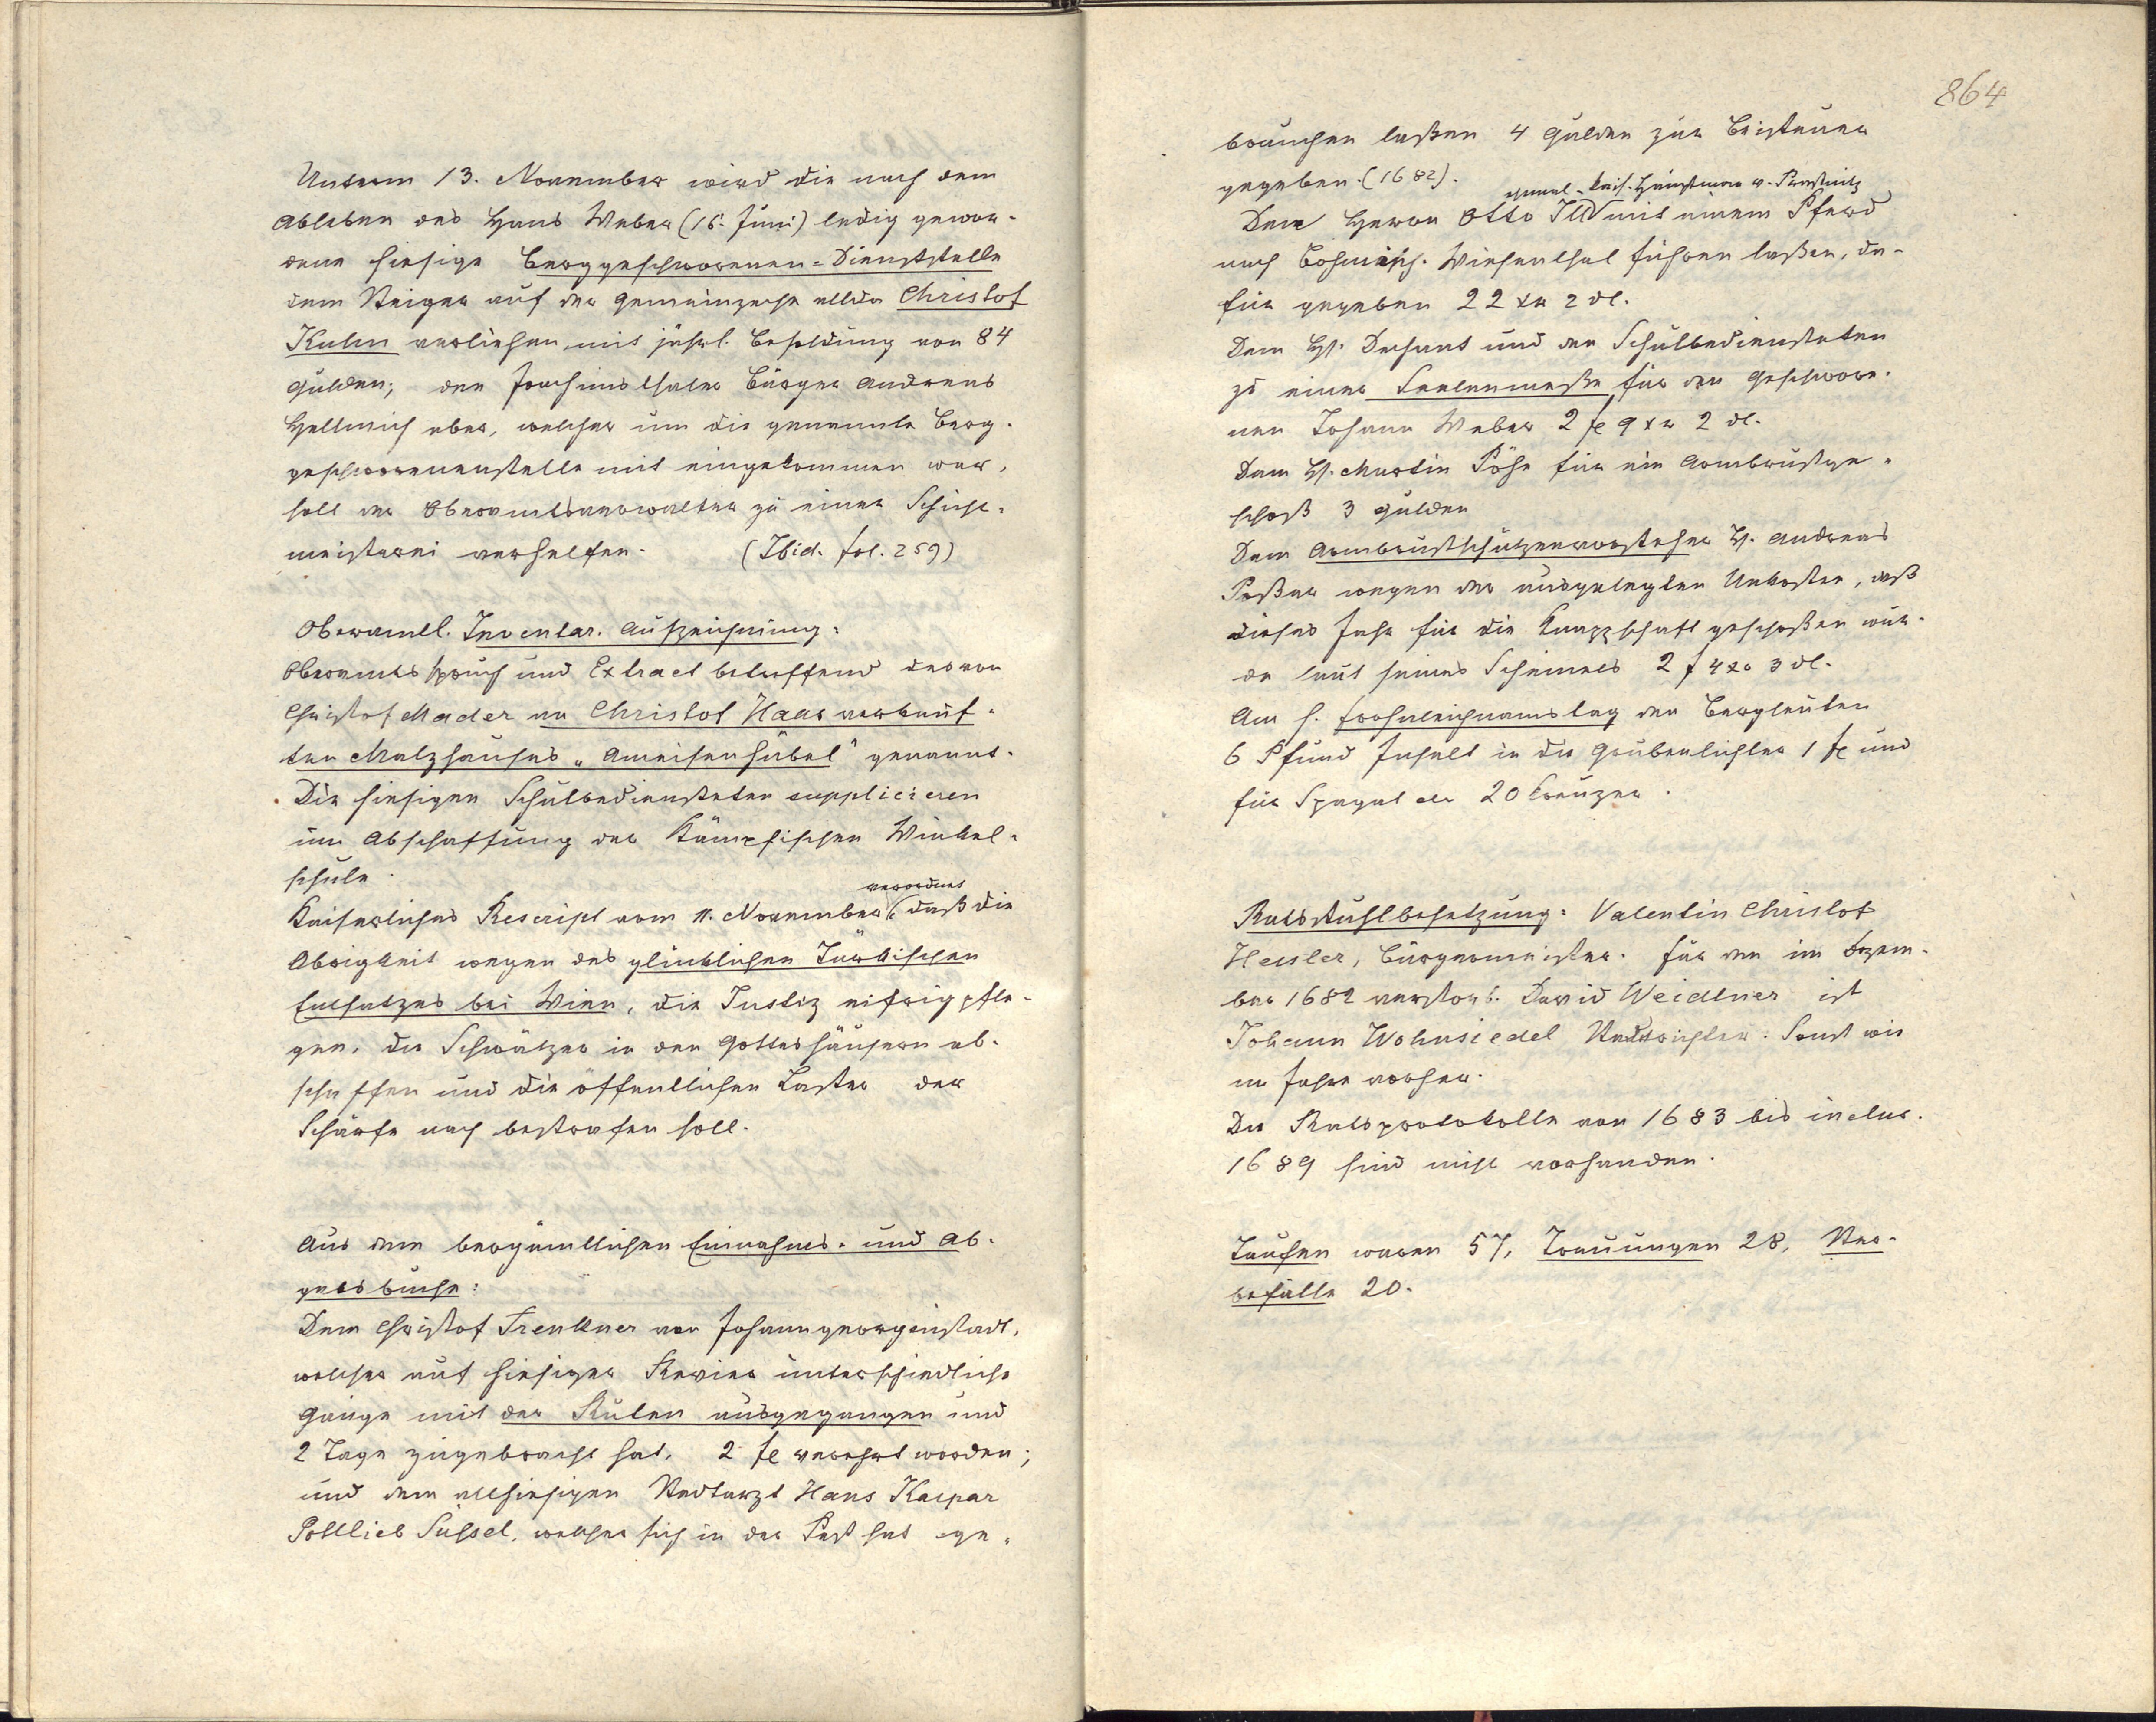 Unterm 13. November wird die nach dem
Ableben des Hans Weber (16. Juni) ledig gewor-
dene hiesige Berggeschworenen-Dienststelle
dem Steiger auf der Gemeinzeche allda Christof
Kulm verliehen mit jährl. Besoldung von 84
Gulden; den Joachimsthaler Bürger Andreas
Hellmich aber, welcher um die genannte Berg-
geschworenenstelle mit eingekommen war,
soll der Oberamtsverwalter zu einer Schicht-
meisterei verhelfen. (Ibid. fol. 259)
Oberamtl. Inventar. Aufzeichnung:
Oberamtsspruch und Extract betreffend des von
Christof Mader an Christof Haas verkauf-
ten Malzhauses „Ameisenhübel" genannt.
Die hiesigen Schulbediensteten supplicieren
um Abschaffung der Kämpfischen Winkel-
schule.
Kaiserliches Rescript vom 11. November verordnet daß die
Obrigkeit wegen des glücklichen Türkischen
Entsatzes bei Wien, die Justiz eifrig pfle-
gen, die Schwätzer in den Gotteshäusern ab-
schaffen und die öffentlichen Laster der
Schärfe nach bestrafen soll.
Aus dem bergämtlichen Einnahms- und Ab-
gabsbuche:
Dem Christof Trenkner von Johanngeorgenstadt,
welcher auf hiesiger Revier unterschiedliche
Gänge mit der Ruten ausgegangen und
2 Tage zugebracht hat, 2 fl verehrt worden;
und dem allhiesigen Stadtarzt Hans Kaspar
Gottlieb Süssel, welcher sich in der Pest hat ge-
864
brauchen laßen 4 Gulden zur Beisteuer
gegeben. (1682).
gewes. kais. Hauptmann v. Preßnitz
Dem Herrn Otto Ill mit einem Pferd
nach Böhmisch. Wiesenthal führen laßen, da-
für gegeben 22 xr 2 dl.
Dem H. Dechant und den Schulbediensteten
zu einer Seelenmeße für den Geschwore-
nen Johann Weber 2 fl 9 xr 2 dl.
Dem H. Martin Pöhe für ein Armbrustge-
schoß 3 Gulden
Dem Armbrustschützenvorsteher H. Andreas
Poßer wegen der ausgelegten Unkosten, daß
dieses Jahr für die Knappschaft geschoßen wur-
de laut seines Scheines 2 f 4 xr 3 dl.
Am h. Frohnleichnamstag den Bergleuten
6 Pfund Inselt in die Grubenlichter 1 fl und
für Spagat etc 20 Kreuzer.
Ratsstuhlbesetzung: Valentin Christof
Hessler, Bürgermeister. Für den im Dezem-
ber 1682 verstorb. David Weidlner ist
Johann Wohnsiedel Stadtrichter. Sonst wie
im Jahre vorher.
Die Ratsprotokolle von 1683 bis inclus.
1689 sind nicht vorhanden.
Taufen waren 57, Trauungen 28, Ster-
befälle 20.